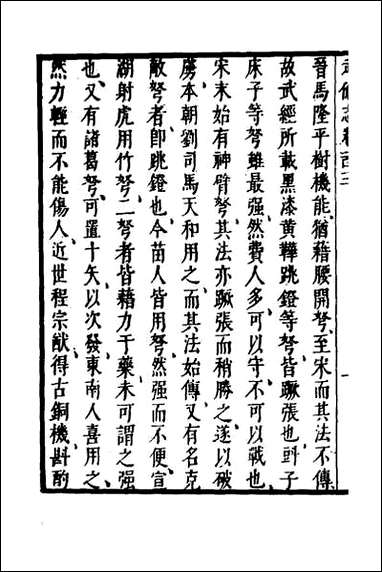 武備志卷一百三
晉馬隆平樹機能、猶藉腰開弩、至宋而其法不傳、
故武經所載黑漆黃鞾跳鐙等弩、皆蹶張也、㪷子
床子等弩雖最强、然費人多、可以守、不可以戰也、
宋末始有神臂弩、其法亦蹶張而稍勝之、遂以破
虜、本朝劉司馬天和用之、而其法始傳、又有名克
敵弩者、卽跳鐙也、今苗人皆用弩、然强而不便、宣
湖射虎用竹弩、二弩者皆藉力于藥、未可謂之强
也、又有諸葛弩、可置十矢、以次發、東南人喜用之、
然力輕而不能傷人、近世程宗猷得古銅機、斟酌